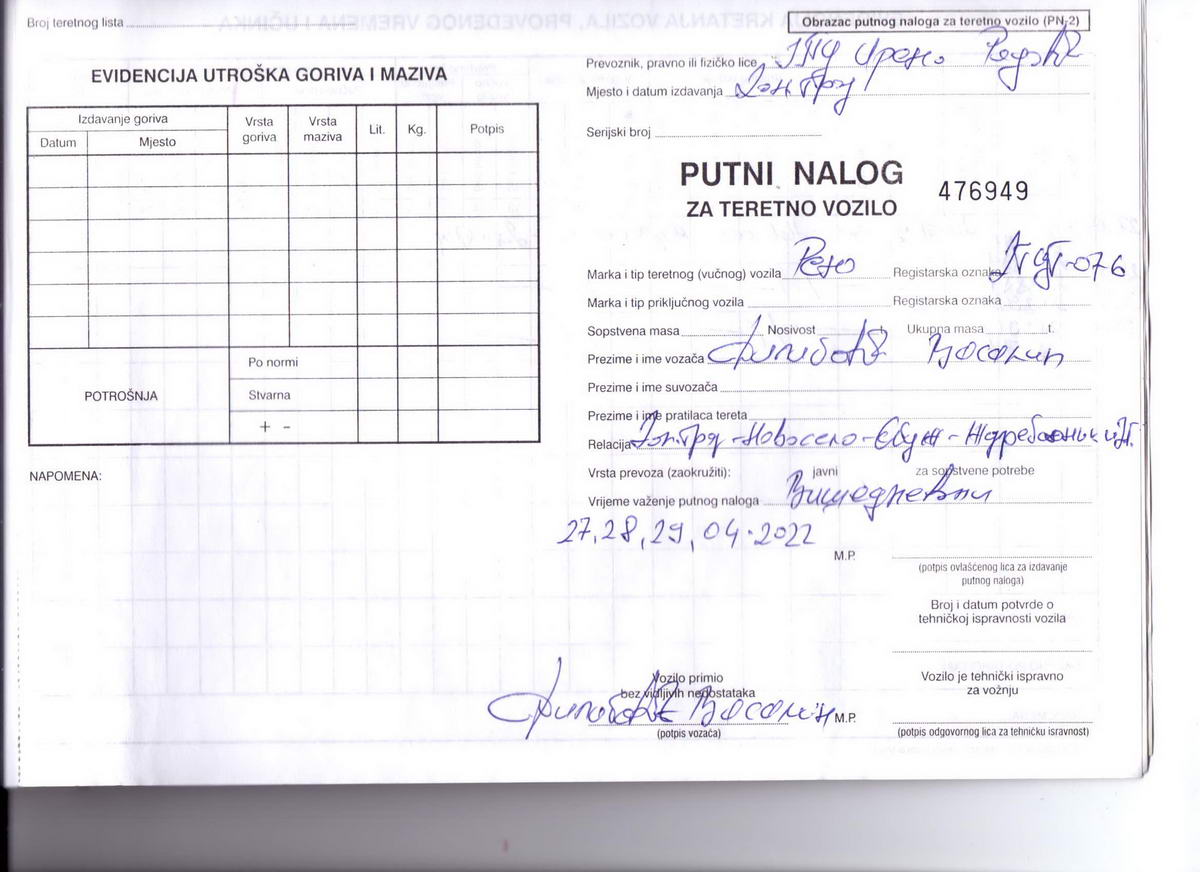 Broj teretnog lista
EVIDENCIJA UTROŠKA GORIVA I MAZIVA
Izdavanje goriva
Datum Mjesto Vrsta goriva Vrsta maziva Lit. Kg. Potpis
POTROŠNJA
Po normi
Stvarna
+ -
NAPOMENA:
Obrazac putnog naloga za teretno vozilo (PN-2)
Prevoznik, pravno ili fizičko lice
Mjesto i datum izdavanja
Serijski broj
PUTNI NALOG
ZA TERETNO VOZILO
476949
Marka i tip teretnog (vučnog) vozila Рено Registarska oznaka -076
Marka i tip priključnog vozila Registarska oznaka
Sopstvena masa Nosivost t Ukupna masa t.
Prezime i ime vozača
Prezime i ime suvozača
Prezime i ime pratilaca tereta
Relacija -Новосело-
Vrsta prevoza (zaokružiti): javni za sopstvene potrebe
Vrijeme važenje putnog naloga Вишедневни
27,28,29,04.2022
M.P.
(potpis ovlašćenog lica za izdavanje
putnog naloga)
Broj i datum potvrde o
tehničkoj ispravnosti vozila
Vozilo primio
bez vidljivih nedostataka
M.P.
(potpis vozača)
Vozilo je tehnički ispravno
za vožnju
(potpis odgovornog lica za tehničku isravnost)